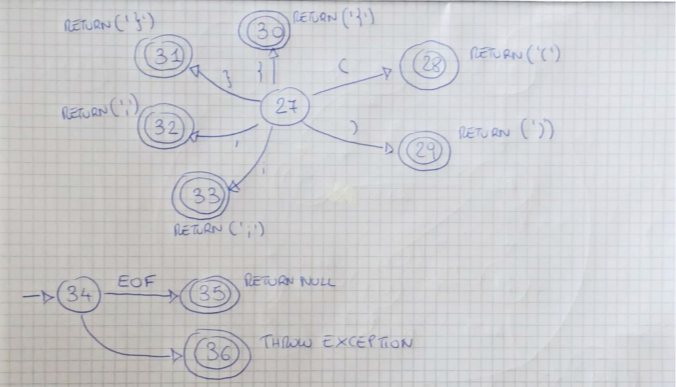 RETURN('}')
31
}
30
{
RETURN('{')
(
28
RETURN('(')
27
RETURN(',')
32
,
)
29
RETURN (')')
33
;
RETURN (';')
34
EOF
35
RETURN NULL
36
THROW EXCEPTION